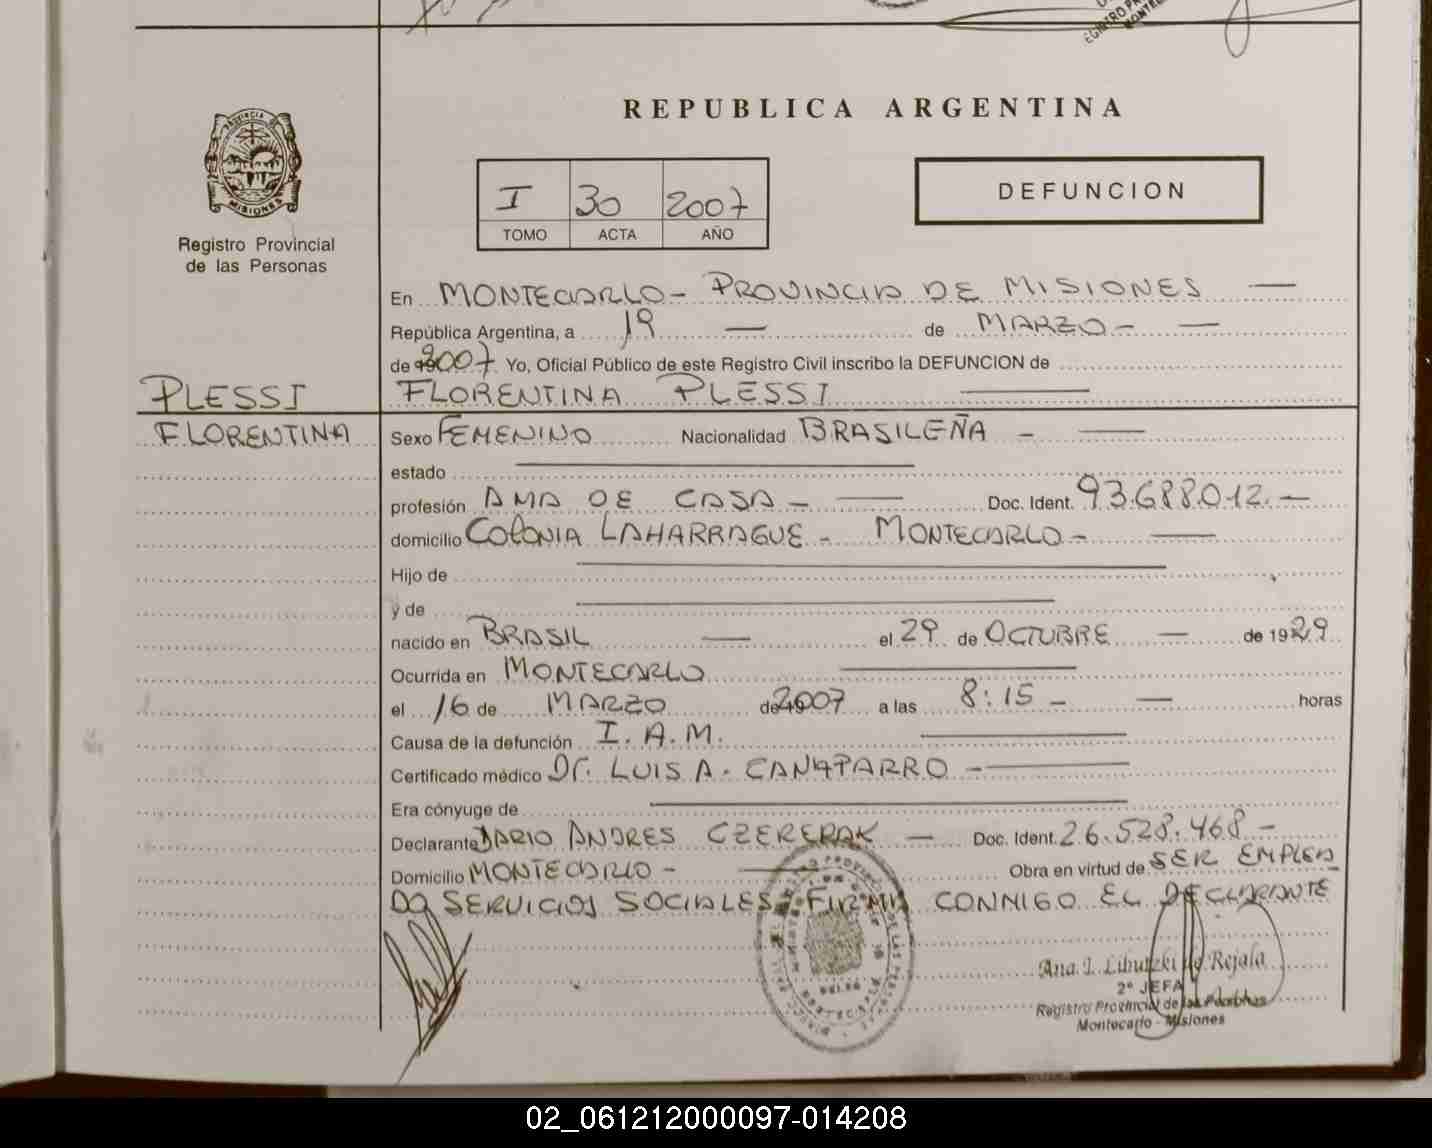 REPUBLICA ARGENTINA
PROVINCIA DE
MISIONES
Registro Provincial
de las Personas
I 30 2007
TOMO ACTA AÑO
DEFUNCION
En MONTECARLO - PROVINCIA DE MISIONES —
República Argentina, a 19 — de MARZO - —
de 2007 Yo, Oficial Público de este Registro Civil inscribo la DEFUNCION de
PLESSI
FLORENTINA
FLORENTINA PLESSI
Sexo FEMENINO Nacionalidad BRASILEÑA - —
estado —
profesión AMA DE CASA - — Doc. Ident. 93.688.012.-
domicilio COLONIA LAHARRAGUE - MONTECARLO - —
Hijo de —
y de —
nacido en BRASIL — el 29 de OCTUBRE — de 1929
Ocurrida en MONTECARLO —
el 16 de MARZO de 2007 a las 8:15 - — horas
Causa de la defunción I.A.M. —
Certificado médico Dr. LUIS A. CANAPARRO -—
Era cónyuge de —
Declarante DARIO ANDRES CZERERAK — Doc. Ident. 26.528.468 -
Domicilio MONTECARLO - — Obra en virtud de SER EMPLEA
DO SERVICIOS SOCIALES - FIRMA CONMIGO EL DECLARANTE
Ana I. Libutzki de Rejala
2º JEFA
Registro Provincial de las Personas
Montecarlo - Misiones
02_061212000097-014208